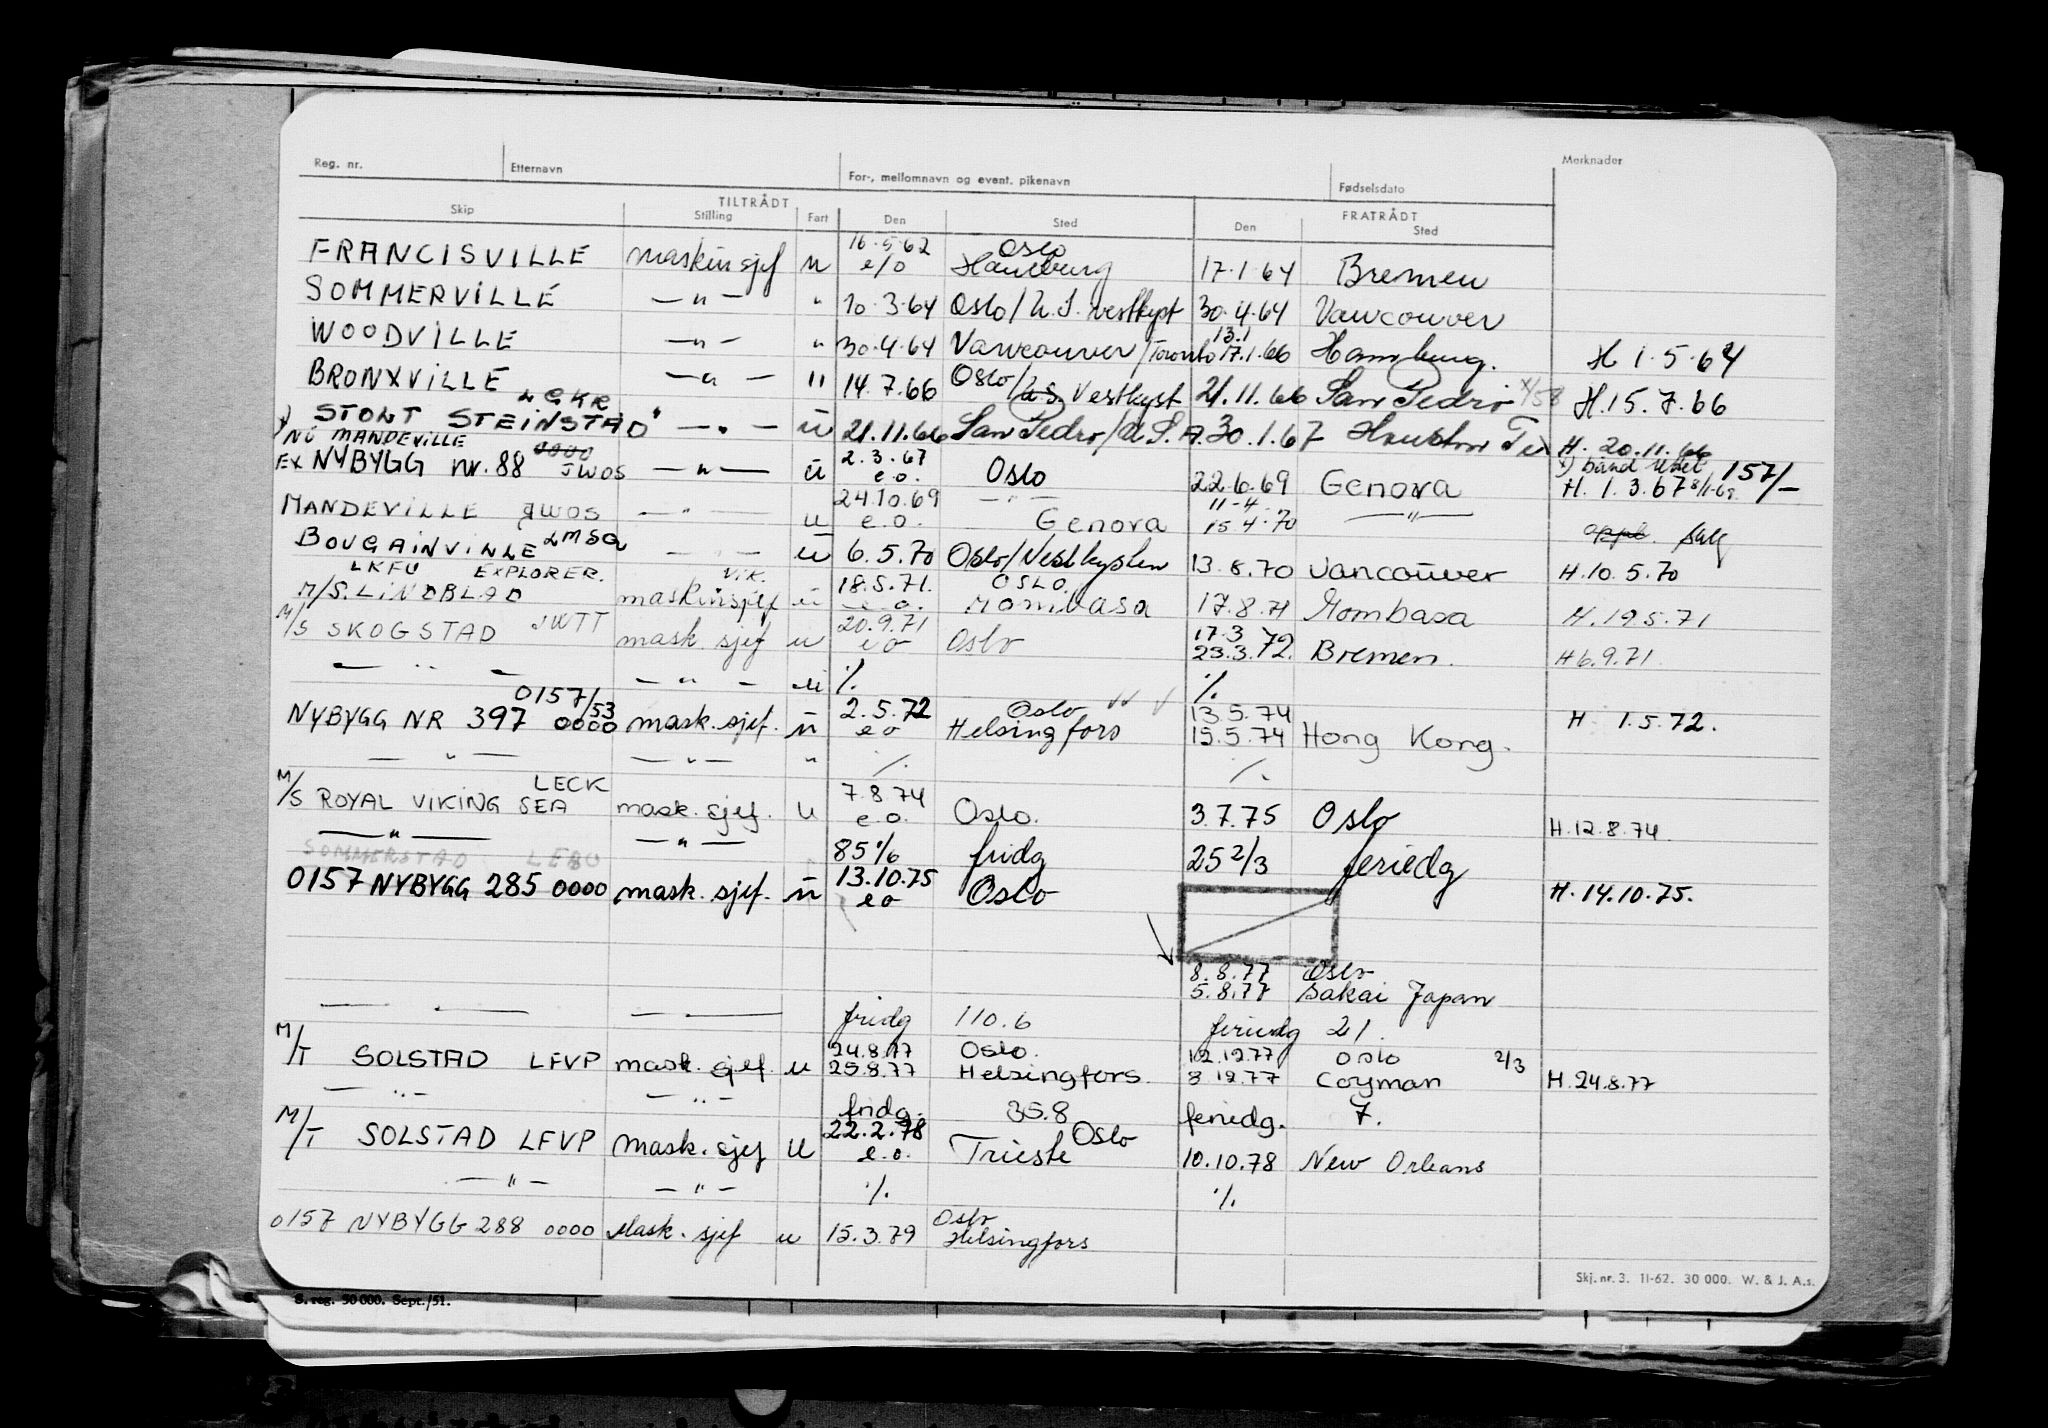 Reg. nr. Etternavn For-, mellomnavn og event. pikenavn Fødselsdato Merknader
TILTRÅDT FRATRÅDT
Skip Stilling Fart Den Sted Den Sted
16.5.62 Oslo
FRANCISVILLE maskinsjef u e/o Hamburg 17.1.64 Bremen
SOMMERVILLE — " — " 10.3.64 Oslo/U.S. vestkyst 30.4.64 Vancouver
13.1
WOODVILLE — " — " 30.4.64 Vancouver/Toronto 17.1.66 Hamburg. H 1.5.64
BRONXVILLE — " — " 14.7.66 Oslo/U.S. Vestkyst 21.11.66 San Pedro H.15.7.66
LGKR
STOLT STEINSTAD" — " — u 21.11.66 San Pedro/U.S.A. 30.1.67 Houston Tex H. 20.11.66
NU MANDEVILLE 0000 2.3.67
EX NYBYGG nr. 88 JWOS — " — u e.o. Oslo 22.6.69 Genova H. 1.3.67 157/—
24.10.69 — " — 11-4.
MANDEVILLE JWOS — " — u e.o. Genova 15.4.70 — " —
BOUGAINVILLE LMSQ — " — u 6.5.70 Oslo/Vestkysten 13.8.70 Vancouver H.10.5.70
LKFU EXPLORER. vik. 18.5.71. OSLO.
M/S. LINDBLAD maskinsjef u e.o. Mombasa 17.8.71 Mombasa H.19.5.71
20.9.71 17.3
M/S SKOGSTAD JWTT mask. sjef u eo Oslo 23.3.72. Bremen. H 6.9.71.
— " — — " — u % %
0157/53 2.5.72 Oslo 13.5.74
NYBYGG NR 397 0000 mask. sjef. u eo Helsingfors 15.5.74 Hong Kong. H 1.5.72.
— " — — " — " % %
LECK 7.8.74
M/S ROYAL VIKING SEA mask. sjef. u e.o. Oslo. 3.7.75 Oslo H.12.8.74.
— " — — " — 85 % fridg 25 2/3 feriedg
SOMMERSTAD LEBU 13.10.75
0157 NYBYGG 285 0000 mask. sjef. u eo Oslo H.14.10.75.
8.8.77 Oslo
5.8.77 Sakai Japan
— " — — " — fridg 110.6 feriedg 21.
24.8.77 Oslo. 12.12.77 Oslo 2/3
M/T SOLSTAD LFVP mask. sjef. u 25.8.77 Helsingfors. 8.12.77 Coyman H.24.8.77
— " — — " — fridg. 35.8 feriedg. 7.
22.2.78 Oslo
M/T SOLSTAD LFVP mask. sjef u e.o. Trieste 10.10.78 New Orleans
— " — — " — % %
Oslo
0157 NYBYGG 288 0000 Mask. sjef u 15.3.79 Helsingfors
Skj. nr. 3. 11-62. 30 000. W. & J. A.s.
S. reg. 50 000. Sept./51.